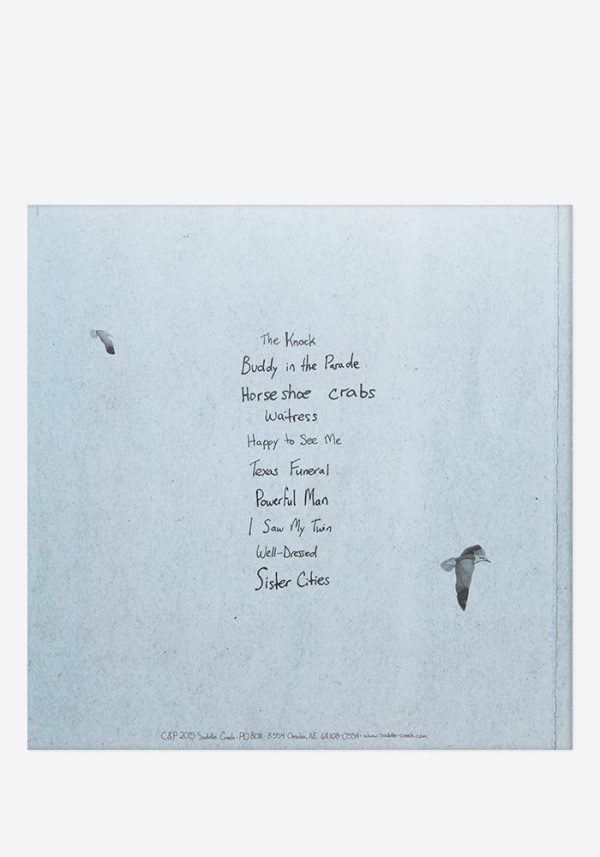 The Knock
Buddy in the Parade
Horseshoe crabs
Waitress
Happy to See Me
Texas Funeral
Powerful Man
I Saw My Twin
Well-Dressed
Sister Cities
C&P 2015 Saddle Creek · PO BOX 8554 Omaha, NE 68108-0554 · www.saddle-creek.com